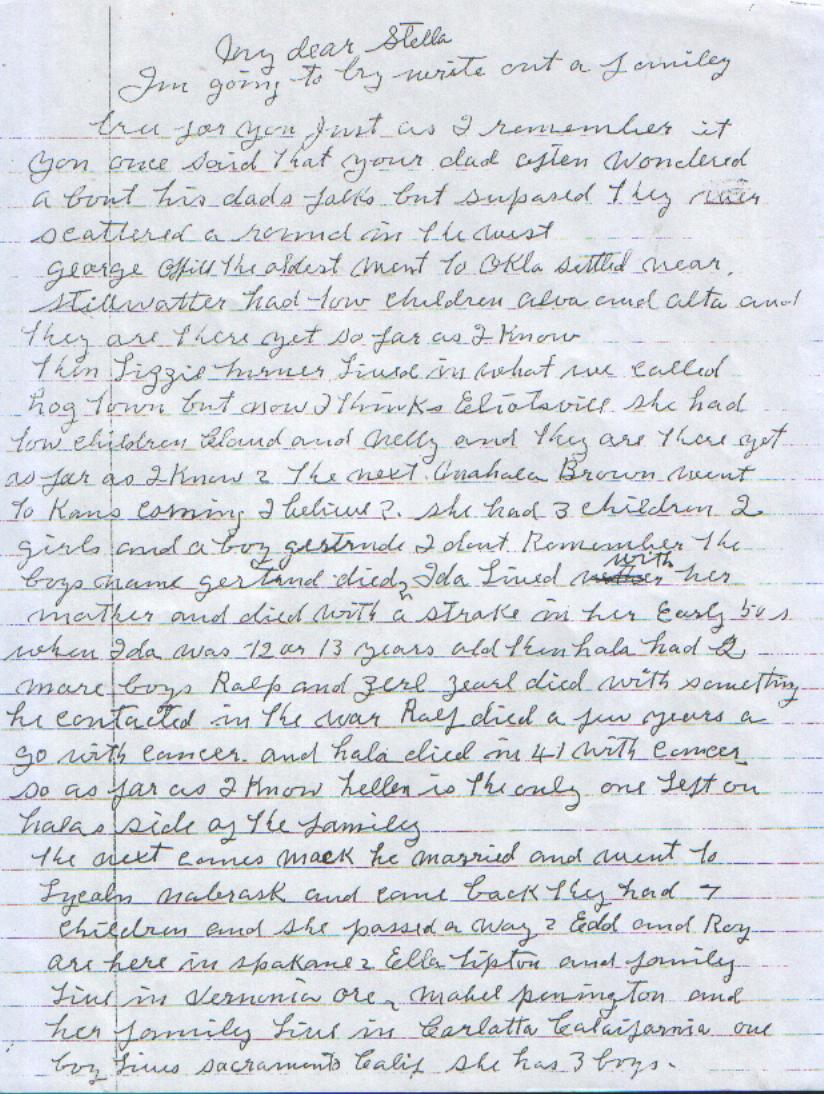 My dear Stella
I'm going to try write out a familey
tree for you Just as I remember it
you once said that your dad often wondered
a bout his dads folks but supased They
scattered a round in The west
george Offill The oldest went to Okla settled near.
stillwatter had tow children alva and alta and
They are There yet so far as I Know
Then Lizzie Turner Lived in what we called
hog Town but now I Thinks Eliotsvill she had
tow children Claud and Nelly and They are There yet
as far as I Know ? The next Mahala Brown went
To Kans coming I believe ?. she had 3 children 2
girls and a boy gertrude I dont Remember The
boys name gertrud died, Ida Lived with her
mother and died with a strake in her Early 50s
when Ida was 12 or 13 years old Then hala had 2
more boys Ralp and Zerl Zearl died with something
he contacted in The war Ralf died a few years a
go with cancer. and hala died in 41 with cancer
so as far as I Know hellen is The only one Left on
halas side of The familey
The next comes mack he married and went To
nabrask and came back They had 7
children and she passed a way ? Edd and Roy
are here in spokane ? Ella Tipton and family
Live in Vernonia ore, mabel penington and
her family Live in Carlatta Calaifornia one
boy Lives sacramento Calif she has 3 boys.